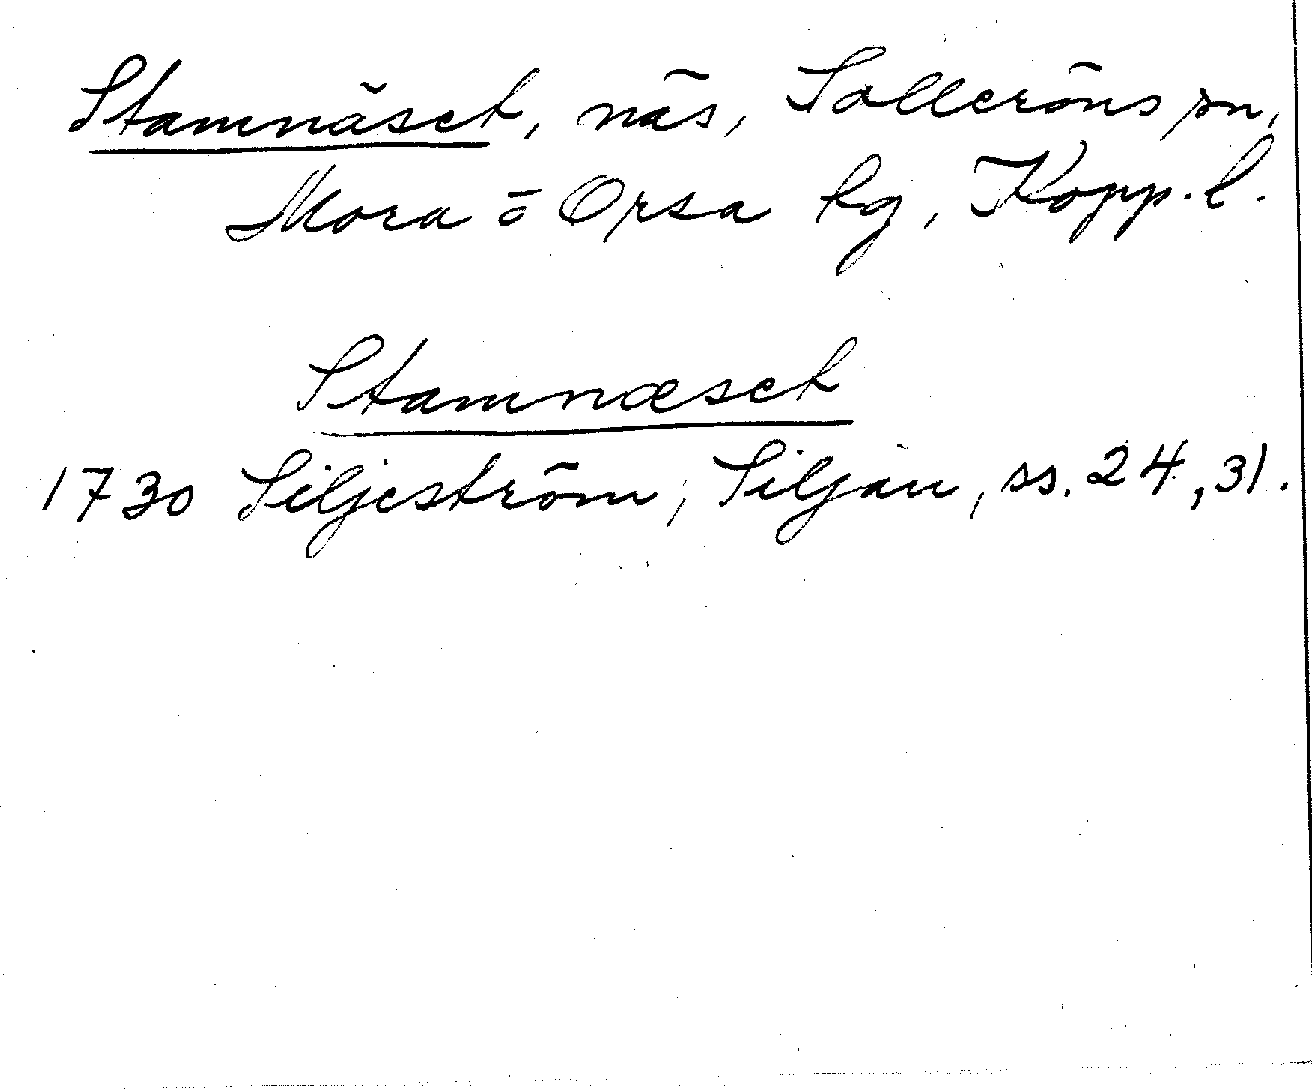 Stamnäset, näs, Solleröns sn,
Mora o Orsa hg, Kopp. l.
Stamnæset
1730 Siljeström, Siljan, ss. 24, 31.